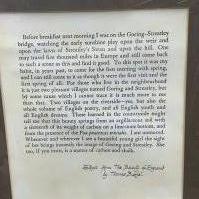 Before breakfast next morning I was on the Goring-Streatley
bridge, watching the early sunshine play upon the weir and
upon the lawn of Streatley's Swan and upon the hill. One
may travel five thousand miles in Europe and still come back
to such a scene as this and find it good. To this spot it was my
habit, in years past, to come for the first morning with spring,
and I can still come to it as though it were the first visit and the
first spring of all. For those who live in the neighbourhood
it is just two pleasant villages named Goring and Streatley, but
by some years which I cannot trace it is much more to me
than that. Two villages on the riverside—yes, but also the
whole volume of English poetry, and all English youth and
all English dreams. Those learned in the countryside might
tell me that this beauty springs from an argillaceous soil with
a sixteenth of its weight of carbon on a limestone bottom, and
from the presence of the I am unmoved.
Whenever and wherever I see a beautiful young girl the sight
of her brings inwards the image of Goring and Streatley. She
too, if you insist, is a matter of carbon and chalk.
from "The Beauty of England"
by Thomas Burke